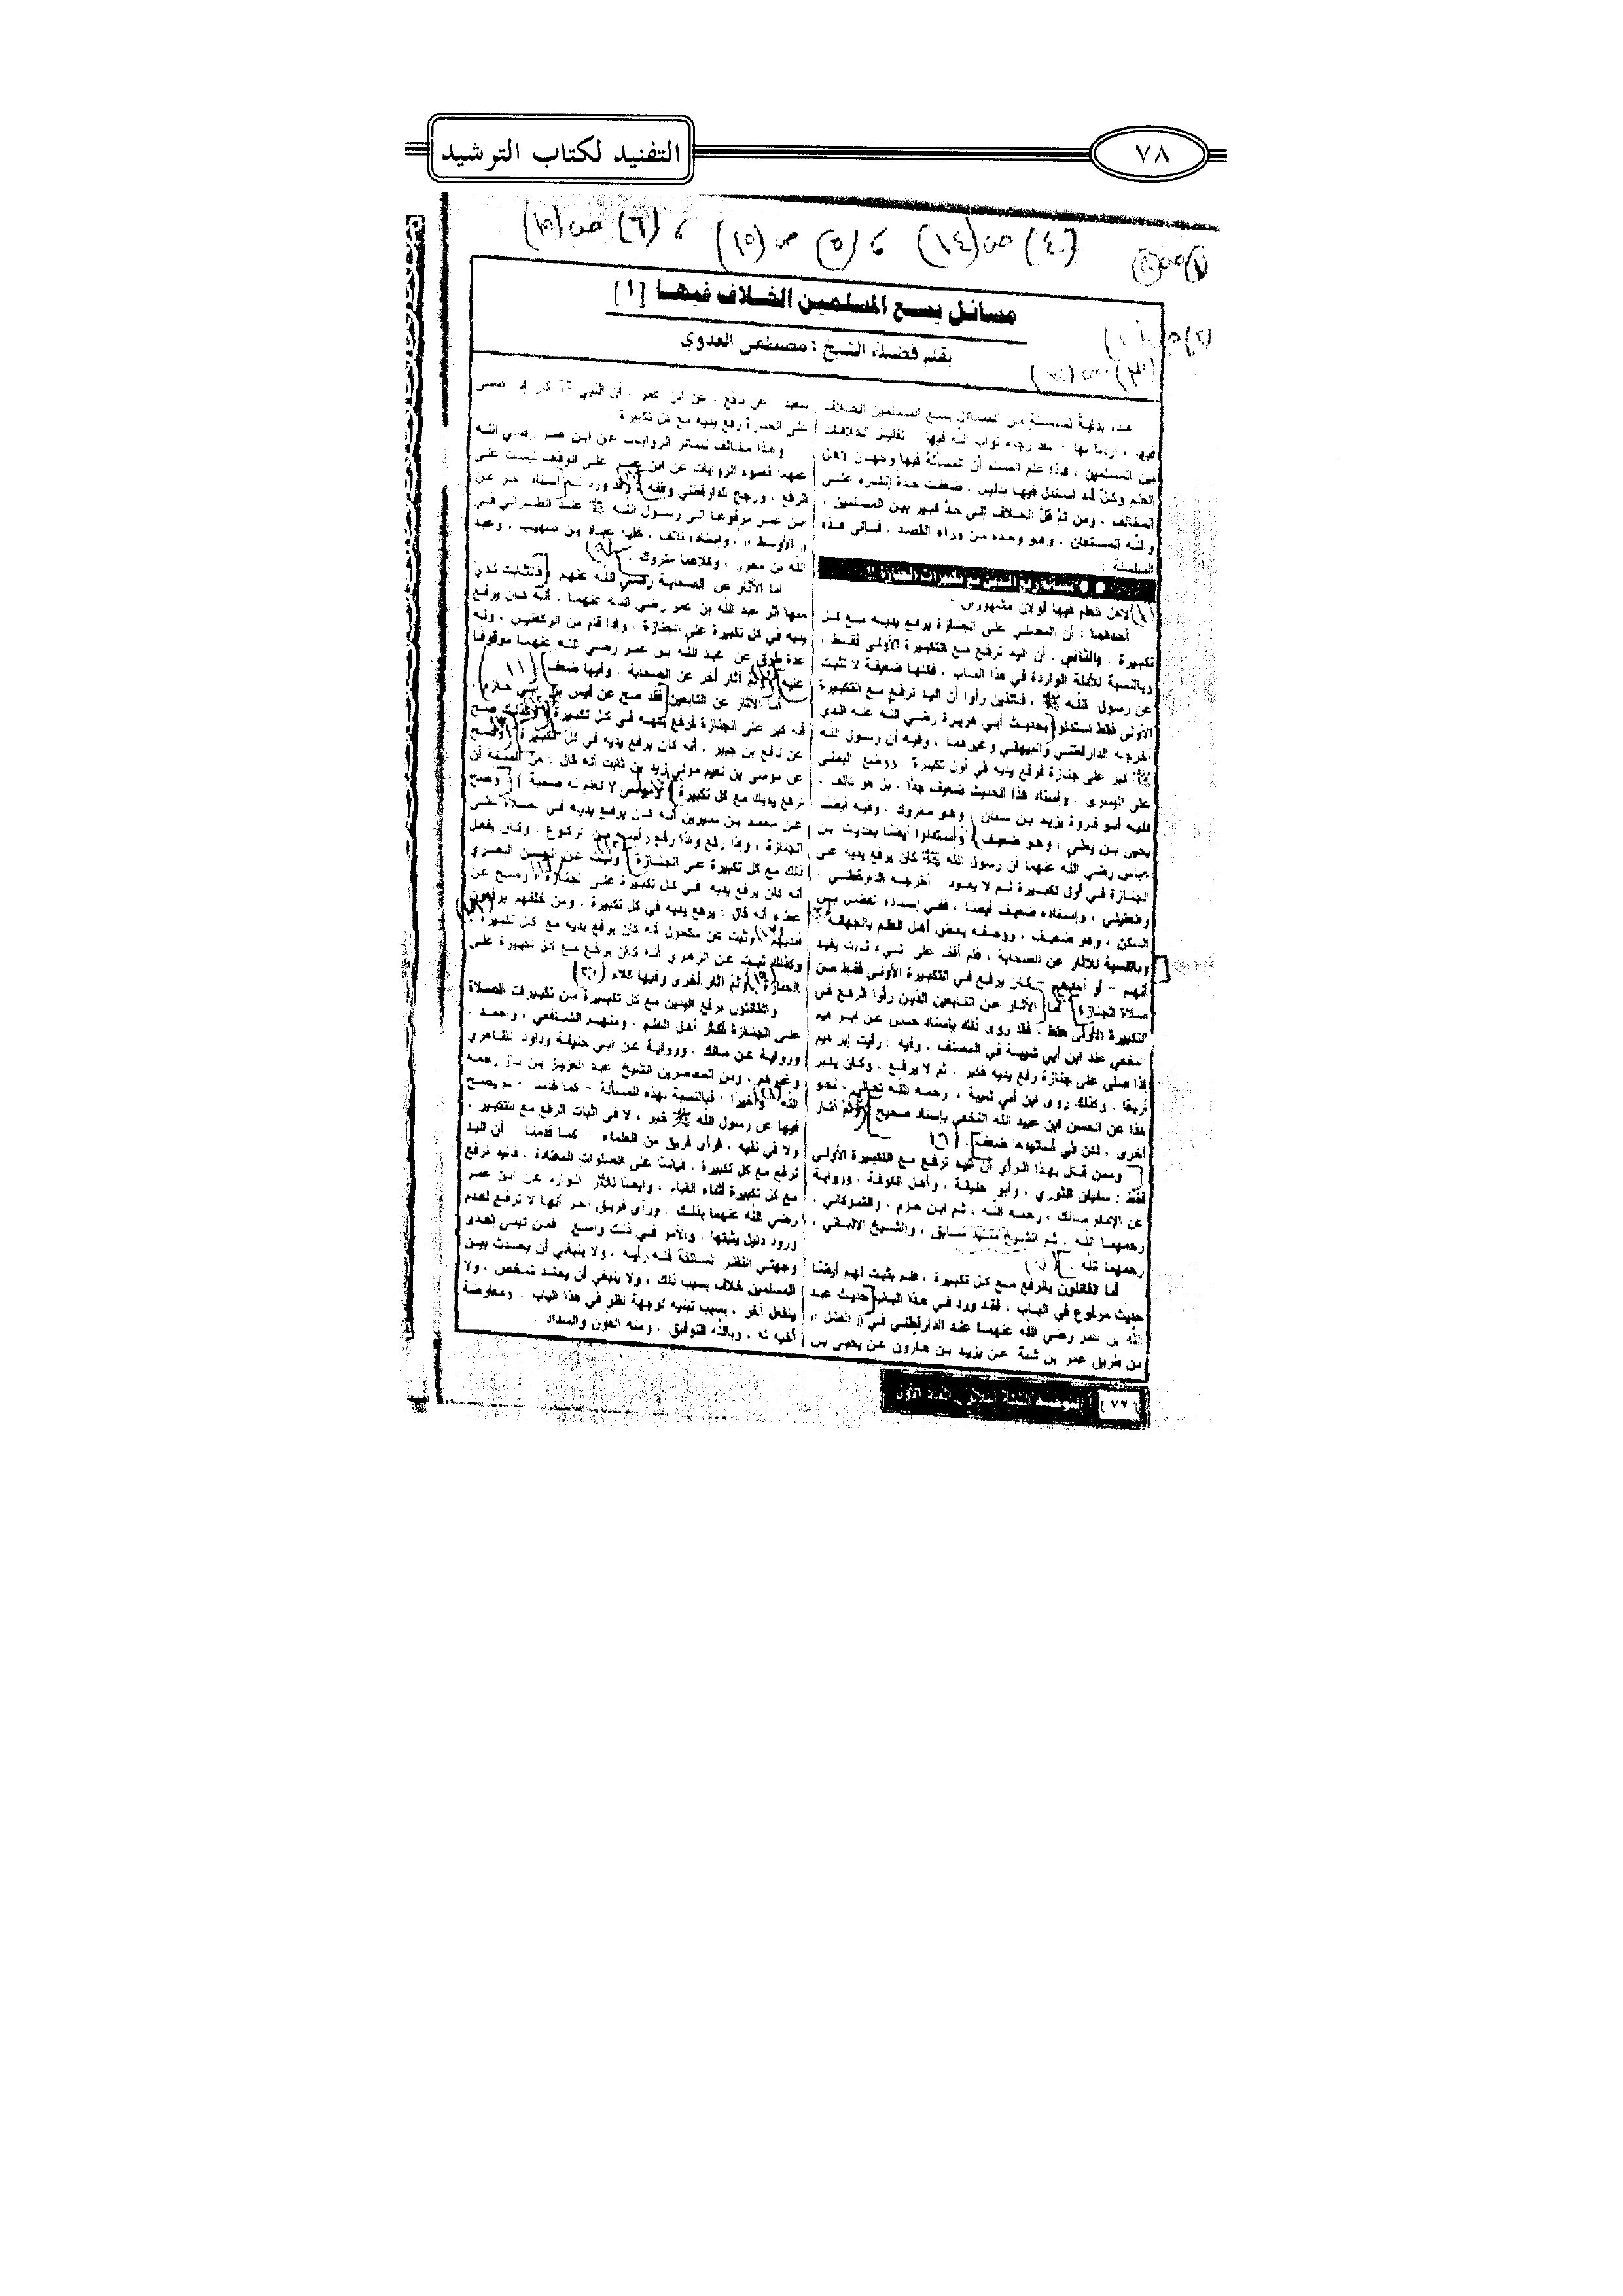 ٧٨
التفنيد لكتاب الترشيد
(٤) ص (١٤) ، (٥) ص (١٥) ، (٦) ص (١٥)
مسائل يسع المسلمين الخلاف فيها [١]
بقلم فضيلة الشيخ : مصطفى العدوي
هذه بداية لسلسلة من المسائل يسع المسلمين الخلاف
فيها ، أردنا بها - بعد رجاء ثواب الله فيها - تقليل الخلافات
بين المسلمين ، فإذا علم المسلم أن المسألة فيها وجهان لأهل
العلم وكل قد استدل فيها بدليل ، ضعفت حدة إنكاره على
المخالف ، ومن ثم قل الخلاف إلى حد كبير بين المسلمين ،
والله المستعان ، وهو وحده من وراء القصد ، فإلى هذه
السلسلة :
لأهل العلم فيها قولان مشهوران .
أحدهما : أن المصلي على الجنازة يرفع يديه مع كل
تكبيرة . والثاني : أن اليد ترفع مع التكبيرة الأولى فقط ،
وبالنسبة للأدلة الواردة في هذا الباب ، فكلها ضعيفة لا تثبت
عن رسول الله ﷺ ، فالذين رأوا أن اليد ترفع مع التكبيرة
الأولى فقط استدلوا بحديث أبي هريرة رضي الله عنه الذي
أخرجه الدارقطني والبيهقي وغيرهما ، وفيه أن رسول الله
ﷺ كبر على جنازة فرفع يديه في أول تكبيرة . ووضع اليمنى
على اليسرى . وإسناد هذا الحديث ضعيف جدًا ، بل هو تالف ،
ففيه أبو فروة يزيد بن سنان ، وهو متروك ، وفيه أيضًا
يحيى بن يعلى ، وهو ضعيف ، واستدلوا أيضا بحديث ابن
عباس رضي الله عنهما أن رسول الله ﷺ كان يرفع يديه على
الجنازة في أول تكبيرة ثم لا يعود . أخرجه الدارقطني ،
والعقيلي ، وإسناده ضعيف أيضا ، ففي إسناده الفضل بن
السكن ، وهو ضعيف ، ووصفه بعض أهل العلم بالجهالة
وبالنسبة للآثار عن الصحابة ، فلم أقف على شيء ثابت يفيد
أنهم - أو أحدهم - كان يرفع في التكبيرة الأولى فقط من
صلاة الجنازة ، أما الآثار عن التابعين الذين رأوا الرفع في
التكبيرة الأولى فقط ، فقد روى ذلك بإسناد حسن عن إبراهيم
النخعي عند ابن أبي شيبة في المصنف ، وفيه : رأيت إبراهيم
إذا صلى على جنازة رفع يديه فكبر ، ثم لا يرفع ، وكان يكبر
أربعًا . وكذلك روى ابن أبي شيبة ، رحمه الله تعالى ، نحو
هذا عن الحسن ابن عبيد الله النخعي بإسناد صحيح ، وثم آثار
أخرى ، لكن في أسانيدها ضعف . (١٦)
وممن قال بهذا الرأي أن اليد ترفع مع التكبيرة الأولى
فقط : سفيان الثوري ، وأبو حنيفة ، وأهل الكوفة ، ورواية
عن الإمام مالك ، رحمه الله ، ثم ابن حزم ، والشوكاني ،
رحمهما الله ، ثم الشيخ سيد سابق ، والشيخ الألباني ،
رحمهما الله .
أما القائلون بالرفع مع كل تكبيرة ، فلم يثبت لهم أيضًا
حديث مرفوع في الباب ، فقد ورد في هذا الباب حديث عبد
الله بن عمر رضي الله عنهما عند الدارقطني في « العلل »
من طريق عمر بن شبة عن يزيد بن هارون عن يحيى بن
سعيد عن نافع ، عن ابن عمر ، أن النبي ﷺ كان إذا صلى
على الجنازة رفع يديه مع كل تكبيرة .
وهذا مخالف لسائر الروايات عن ابن عمر رضي الله
عنهما فسوء الروايات عن ابن عمر على الوقف ليست على
الرفع ، ورجح الدارقطني وقفه ، وقد ورد ثم إسناد آخر عن
ابن عمر مرفوعًا إلى رسول الله ﷺ عند الطبراني في
« الأوسط » ، وإسناده تالف ، ففيه عباد بن صهيب ، وعبد
الله بن محرر ، وكلاهما متروك . (٩)
أما الآثار عن الصحابة رضي الله عنهم ، فالثابت لدي
منها أثر عبد الله بن عمر رضي الله عنهما ، أنه كان يرفع
يديه في كل تكبيرة على الجنازة ، وإذا قام من الركعتين ، وله
عدة طرق عن عبد الله بن عمر رضي الله عنهما موقوفًا
عليه ، وثم آثار أخر عن الصحابة . وفيها ضعف (١١)
أما الآثار عن التابعين فقد صح عن قيس بن أبي حازم ،
أنه كبر على الجنازة فرفع يديه في كل تكبيرة ، وكذلك صح
عن نافع بن جبير ، أنه كان يرفع يديه في كل تكبيرة ، وصح
عن موسى بن نعيم مولى زيد بن ثابت أنه قال : من السنة أن
ترفع يديك مع كل تكبيرة ، وموسى لا تعلم له صحبة ، وصح
عن محمد بن سيرين أنه كان يرفع يديه في صلاة على
الجنازة ، وإذا ركع وإذا رفع رأسه من الركوع . وكان يفعل
ذلك مع كل تكبيرة على الجنازة ، وثبت عن الحسن البصري
أنه كان يرفع يديه في كل تكبيرة على الجنازة ، وصح عن
عطاء أنه قال : يرفع يديه في كل تكبيرة ، ومن خلفهم يرفعون
أيديهم ، وثبت عن مكحول أنه كان يرفع يديه مع كل تكبيرة ،
وكذلك ثبت عن الزهري أنه كان يرفع مع كل تكبيرة على
الجنازة (١٩) وثم آثار أخرى وفيها كلام (٢٠)
والقائلون برفع اليدين مع كل تكبيرة من تكبيرات الصلاة
على الجنازة أكثر أهل العلم ، ومنهم الشافعي ، وأحمد ،
ورواية عن مالك ، ورواية عن أبي حنيفة وداود الظاهري
وغيرهم ، ومن المعاصرين الشيخ عبد العزيز بن باز رحمه
الله ، وأخيرًا : فبالنسبة لهذه المسألة - كما قدمنا - لم يصح
فيها عن رسول الله ﷺ خبر ، لا في إثبات الرفع مع التكبير ،
ولا في نفيه ، فرأى فريق من العلماء - كما قدمنا - أن اليد
ترفع مع كل تكبيرة ، قياسًا على الصلوات المعتادة ، فاليد ترفع
مع كل تكبيرة أثناء القيام ، وأيضًا للآثار الواردة عن ابن عمر
رضي الله عنهما بذلك . ورأى فريق آخر أنها لا ترفع لعدم
ورود دليل يثبتها . والأمر في ذلك واسع . فمن تبنى إحدى
وجهتي النظر السالفة فله رأيه . ولا ينبغي أن يحدث بين
المسلمين خلاف بسبب ذلك ، ولا ينبغي أن يحتد شخص ، ولا
ينفعل آخر ، بسبب تبنيه لوجهة نظر في هذا الباب ، ومعارضة
أخيه له . وبالله التوفيق ، ومنه العون والسداد
[٧٢] السنة العدد الأول